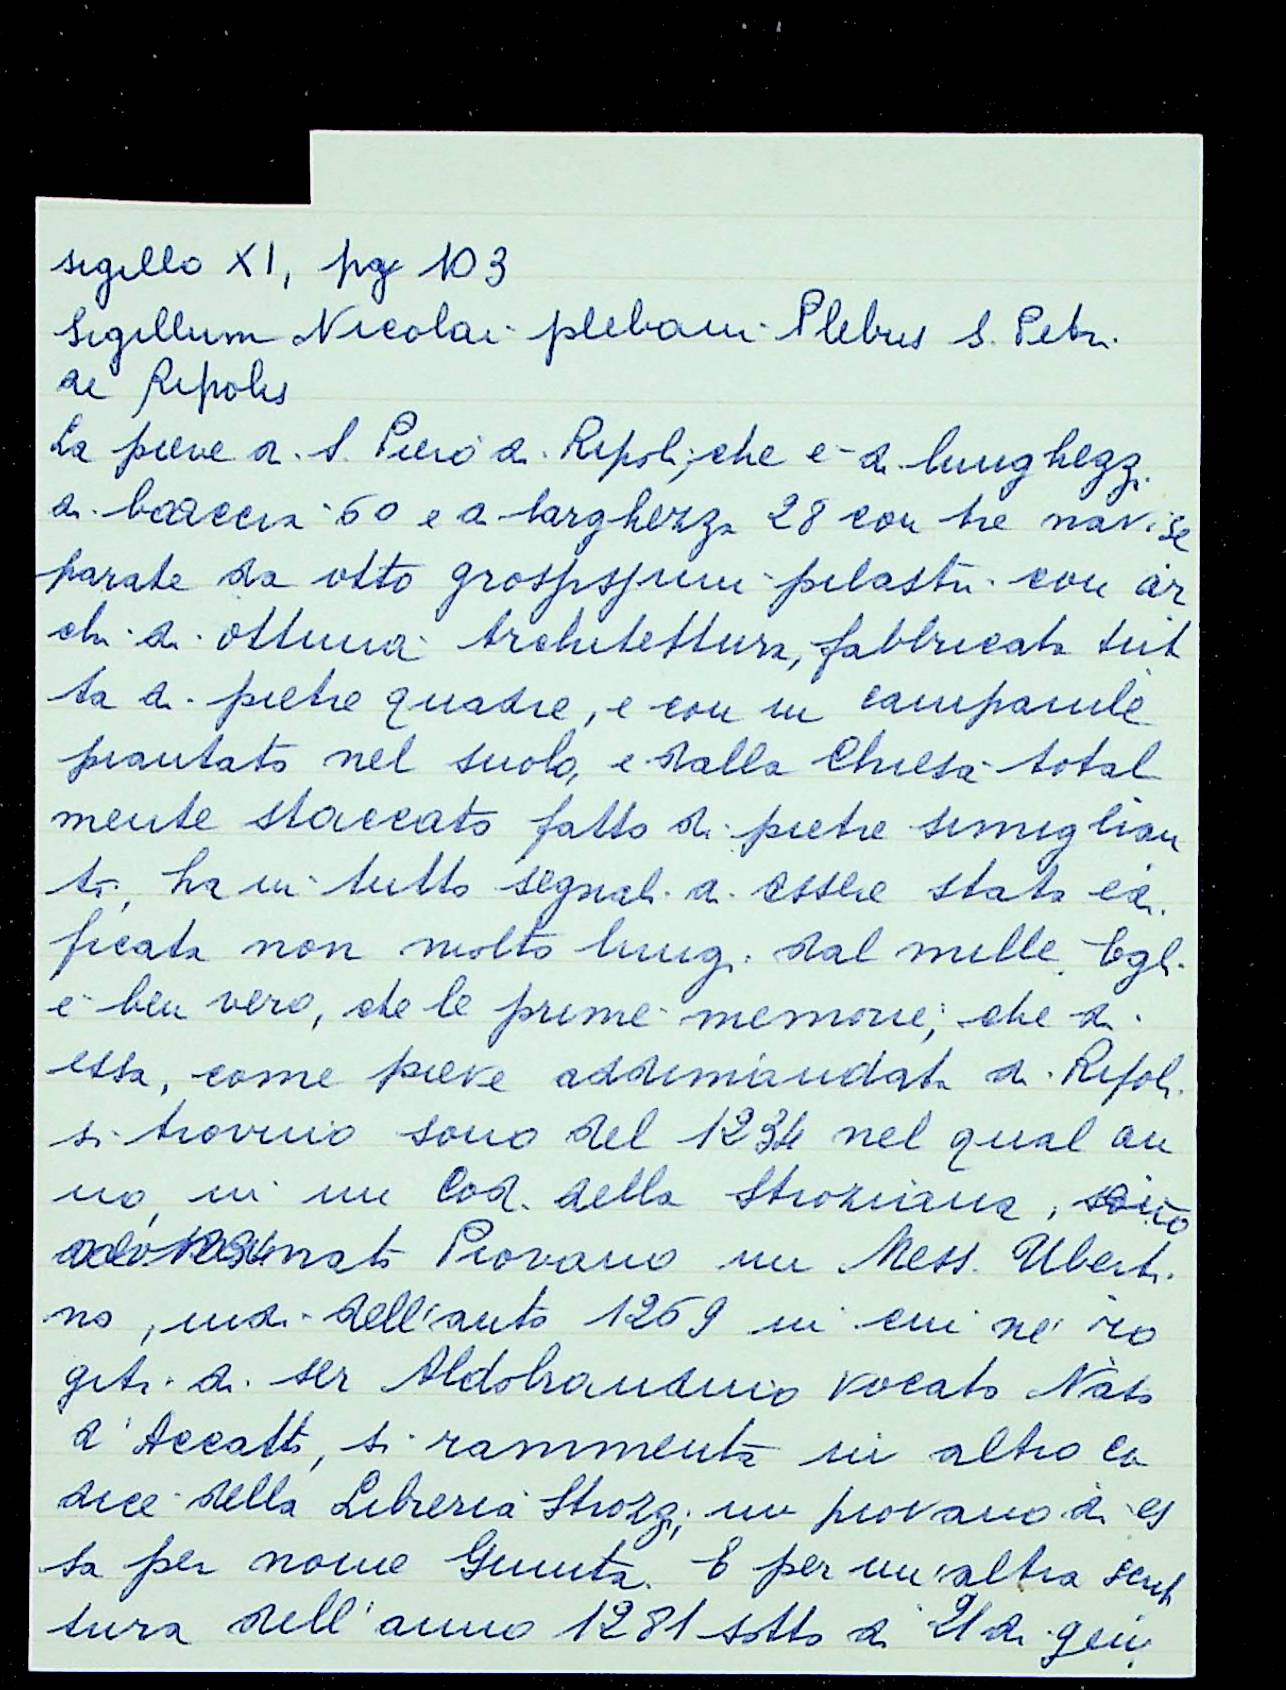 sigillo XI, pg 103
Sigillum Nicolai plebani Plebis S. Petri
de Ripolis
La pieve di S. Piero di Ripoli, che è di lunghezz.
di braccia 60 e di larghezza 28 con tre navi se
parate da otto grossissimi pilastri con ar
chi di ottima Architettura, fabbricata tut
ta di pietre quadre, e con un campanile
piantato nel suolo, e dalla Chiesa total
mente staccato fatto di pietre simiglian
ti, ha in tutto segnali di essere stata edi
ficata non molto lungi dal mille. Egli
è ben vero, che le prime memorie, che di
essa, come pieve addimandata di Ripoli
si trovino sono del 1234 nel qual an
no, in un Cod. della Stroziana,
Piovano un Mess. Uberti
no, indi dell'anto 1269 in cui ne' ro
giti di ser Aldobrandino vocato Naso
d'Accatto, si rammenta in altro co
dice della Libreria Strozzi, un piovano di es
sa per nome Giunta. E per un'altra scrit
tura dell'anno 1281 sotto di 21 di gen.